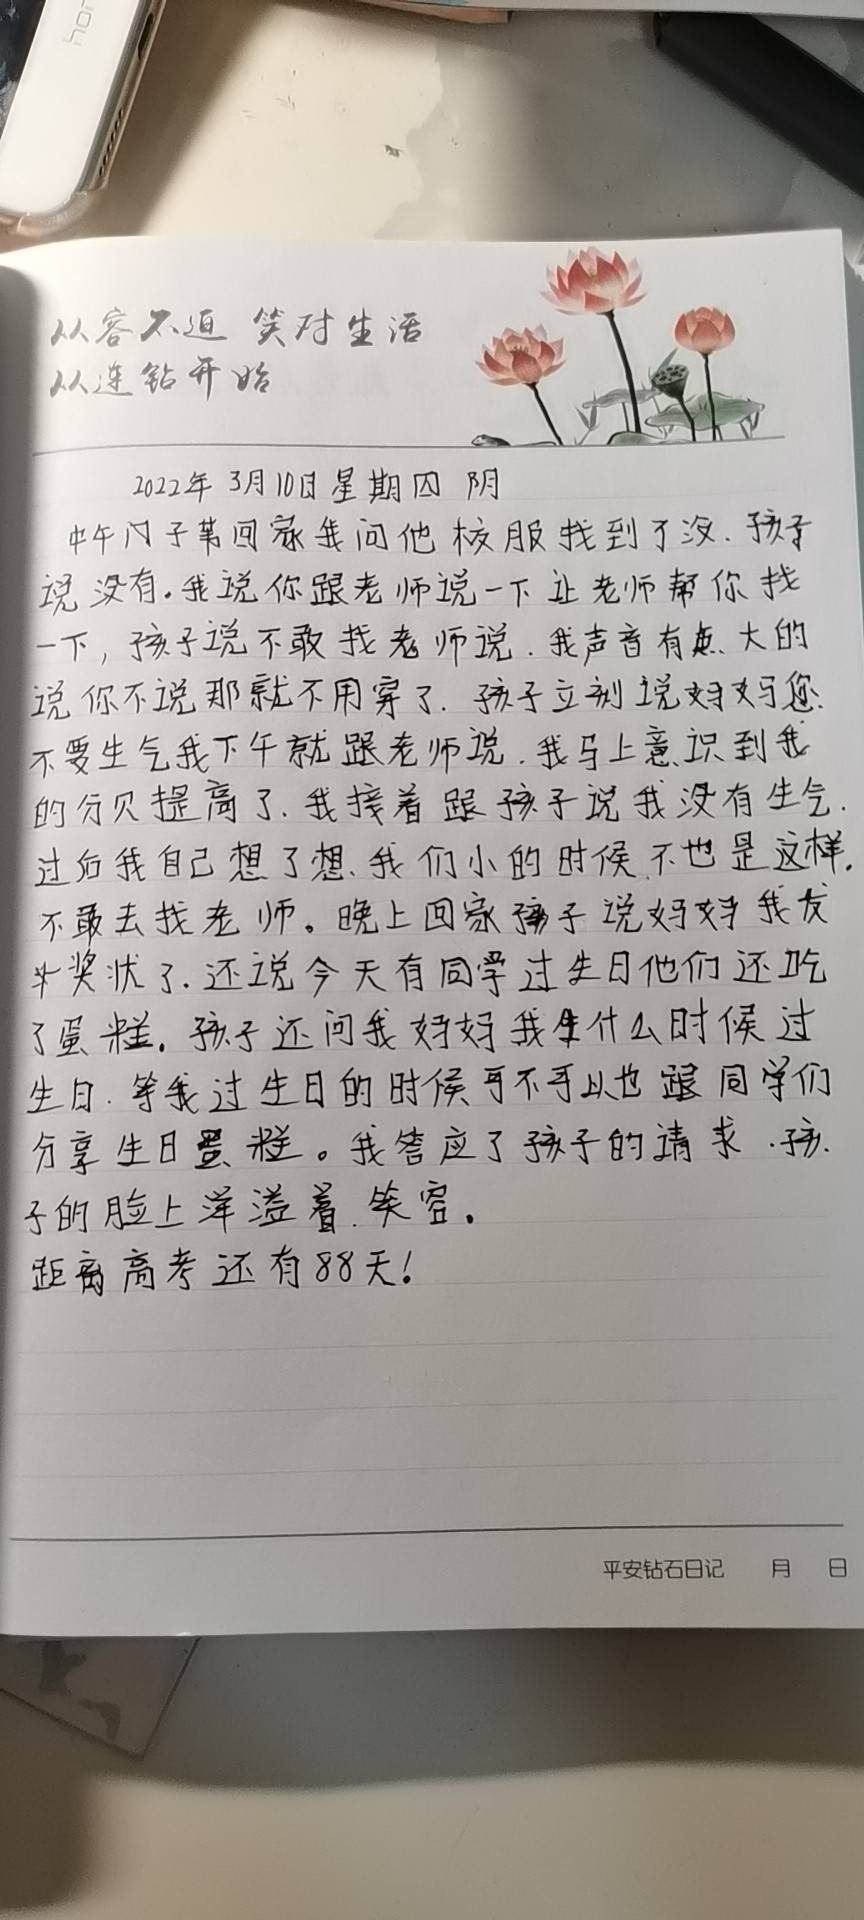 hon
从容不迫 笑对生活
从连钻开始
2022年3月10日星期四 阴
中午闪子第回家我问他校服找到了没.孩子
说没有。我说你跟老师说一下让老师帮你找
一下,孩子说不敢找老师说.我声音有点大的
说你不说那就不用穿了.孩子立刻说妈妈您
不要生气我下午就跟老师说.我马上意识到我
的分贝提高了.我接着跟孩子说我没有生气.
过后我自己想了想、我们小的时候不也是这样.
不敢去找老师。晚上回家孩子说妈妈我发
奖状了.还说今天有同学过生日他们还吃
了蛋糕。孩子还问我妈妈我什么时候过
生日.等我过生日的时候可不可以也跟同学们
分享生日蛋糕。我答应了孩子的请求.孩
子的脸上洋溢着笑容。
距离高考还有88天!
平安钻石日记 月 日